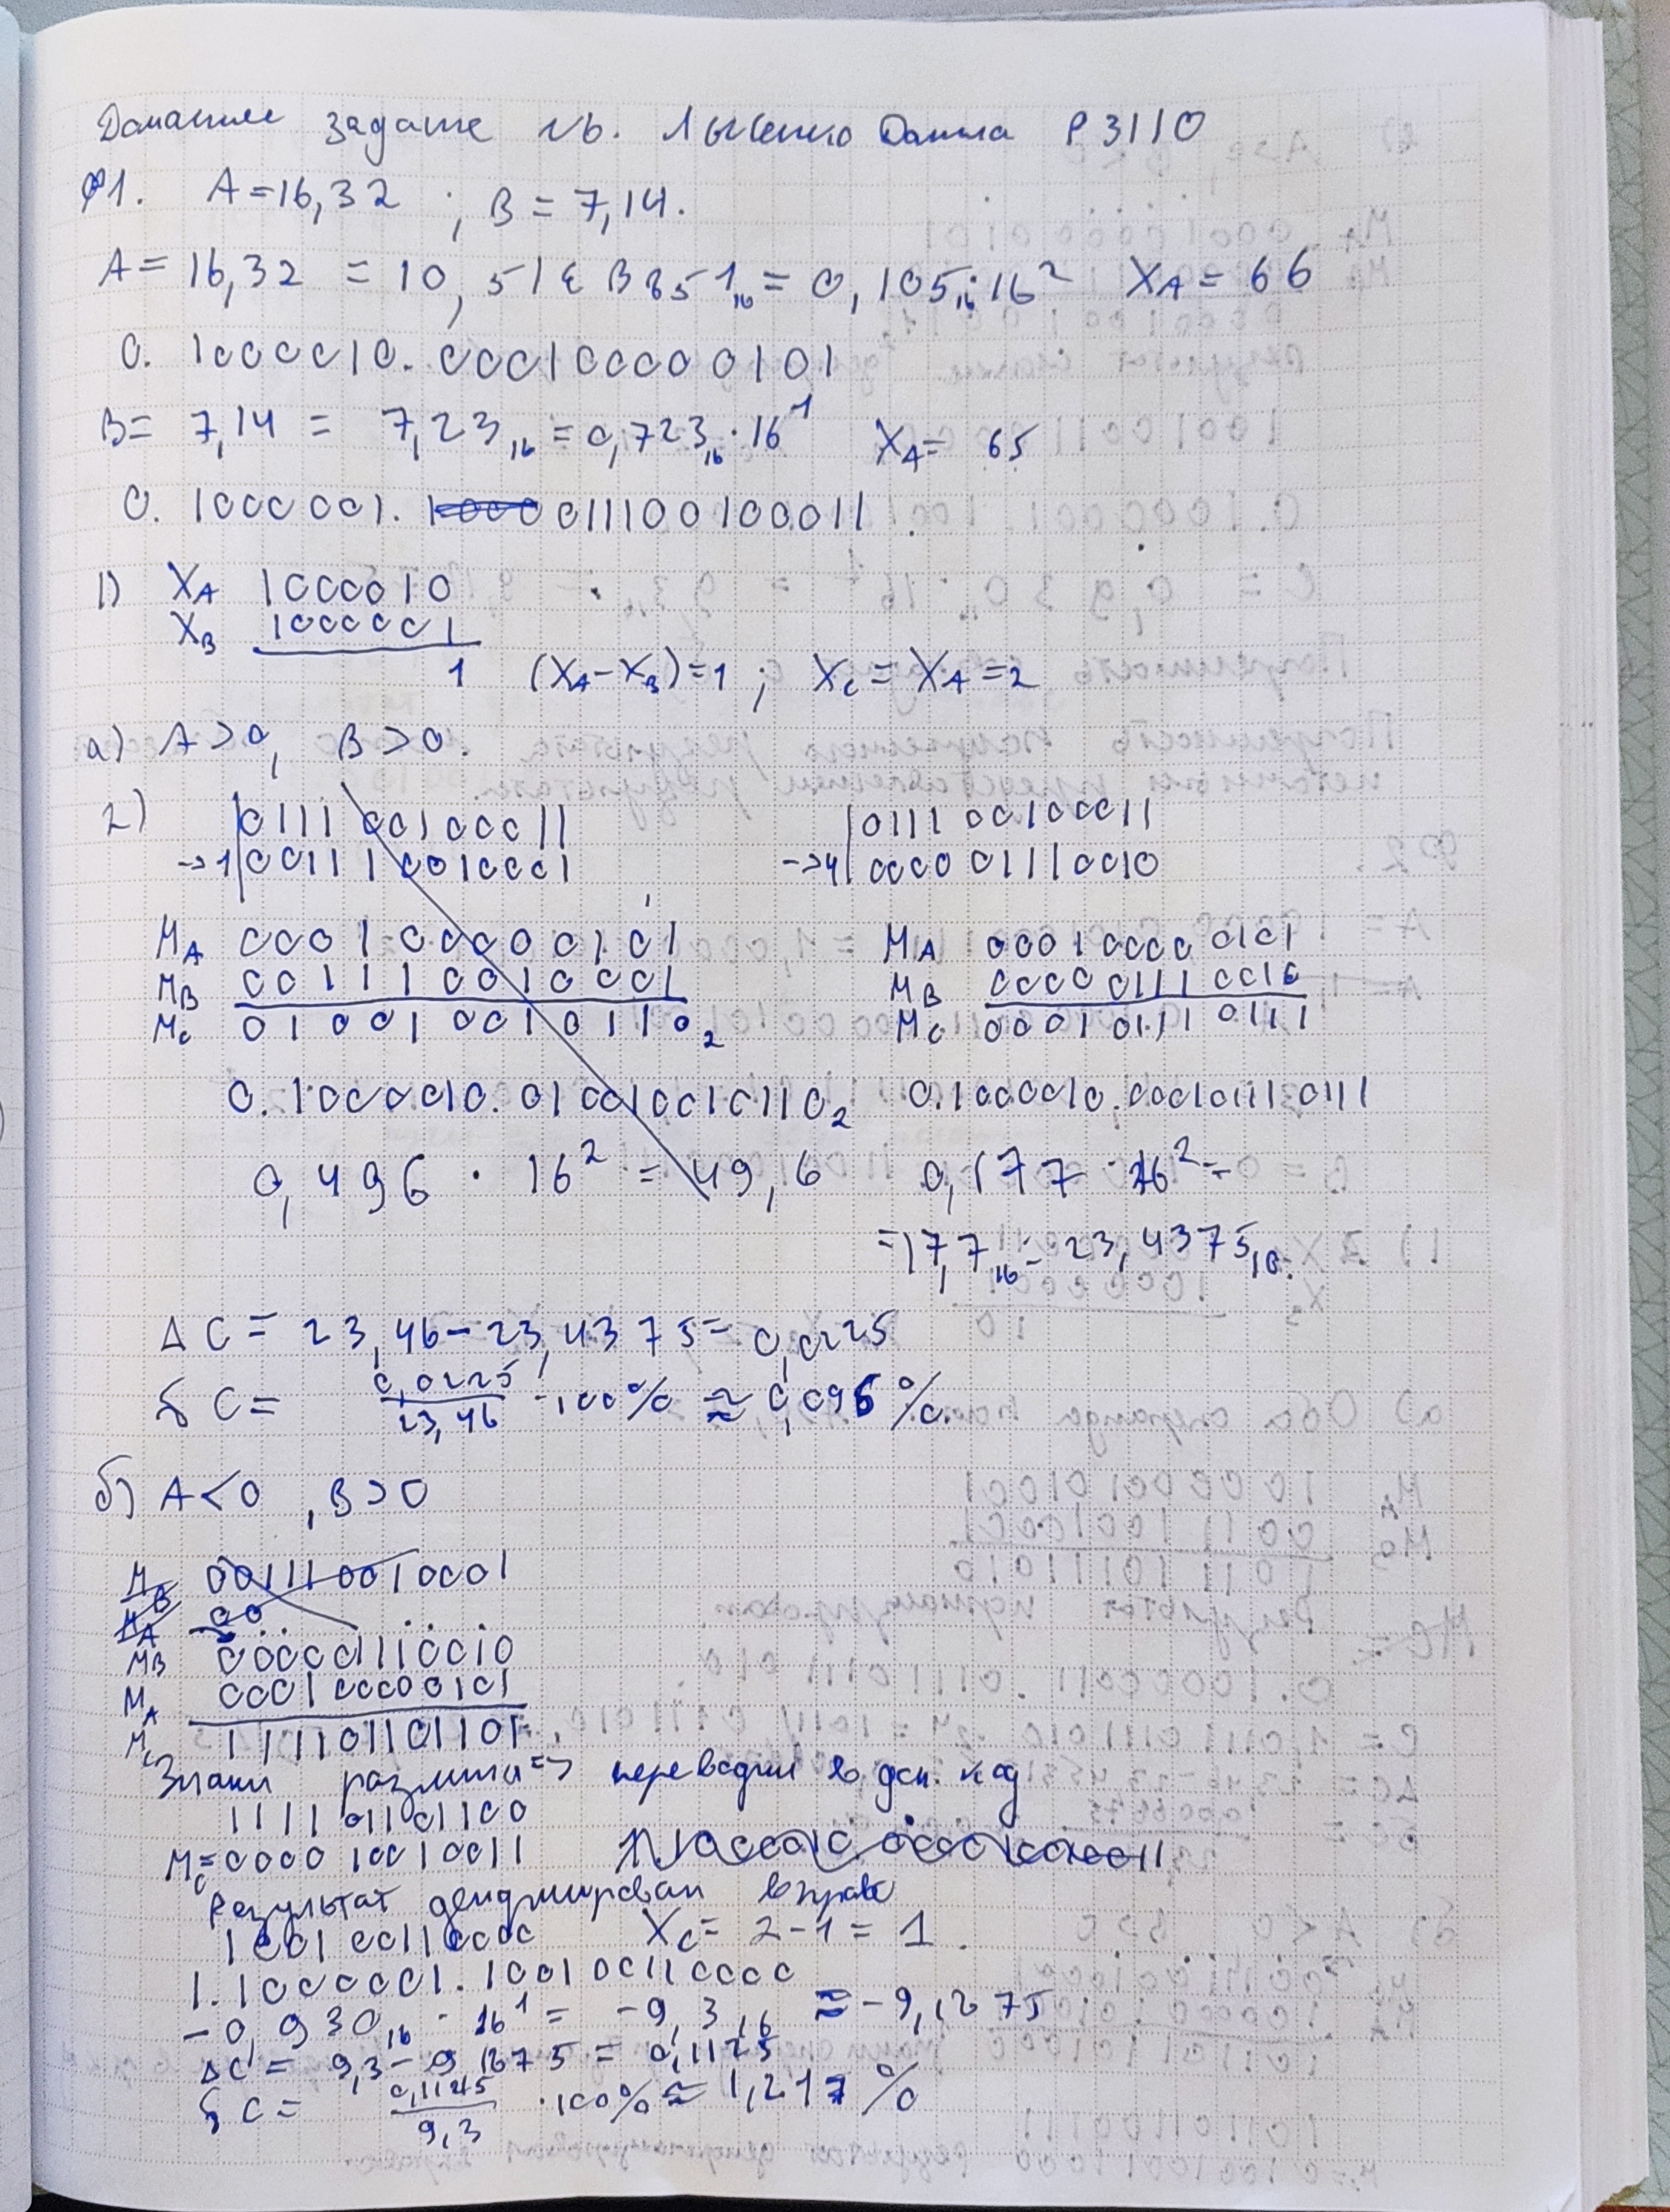 Домашнее задание №6. Лысенко Данила P3110
Ф1. A=16,32 ; B = 7,14.
A = 16,32 = 10,51EB851₁₆ = 0,105₁₆·16² Xₐ = 66
0. 1000010. 000100000101
B = 7,14 = 7,23₁₆ = 0,723₁₆·16¹ Xₐ = 65
0. 1000001. 011100100011
1) Xₐ 1000010
X_B 1000001
1 (Xₐ-X_B)=1 ; X_c = Xₐ = 2
а) A>0, B>0.
2) |011100100011 |011100100011
→1|001110010001 →4|000001110010
Mₐ 000100000101 Mₐ 000100000101
M_B 001110010001 M_B 000001110010
M_c 010010010110₂ M_c 000101110111
0.1000010.010010010110₂ 0.1000010.000101110111
0,496 · 16² = 49,6 0,177 · 16² =
=17,7₁₆ = 23,4375₁₀.
ΔC = 23,46-23,4375 = 0,0225
δC = 0,0225/23,46 ·100% ≈ 0,096%.
б) A<0, B>0
M_B 001110010001
Mₐ 00
M_B 000001110010
Mₐ 000100000101
M_c 111101101101
Знаки различны => переводим в доп. код
111101101100
M_c=000010010011
Результат денормирован вправо
100100110000 X_c = 2-1 = 1.
1.1000001.100100110000
-0,930₁₆ · 16¹ = -9,3₁₆ ≈ -9,1875
ΔC = 9,3-9,1875 = 0,1125
δC = 0,1125/9,3 ·100% ≈ 1,217%